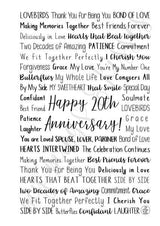 LOVEBIRDS Thank You For Being You BOND OF LOVE
Making Memories Together Best Friends Forever
Deliriously in Love Hearts that Beat together
Two Decades of Amazing PATIENCE Commitment
We Fit Together Perfectly I Cherish You
Forgiveness Grace My Love You're My Number One
Butterflies My Whole Life Love Conquers All
By My Side MY SWEETHEART That Smile Special Day
Confidant Soulmate
Best Friend LOVEBIRDS
Happy 20th
Patience Grace
Anniversary!
Laughter My Love
You are Loved SPOUSE, LOVER, PARTNER Bond of Love
HEARTS INTERTWINED The Celebration Continues
Making Memories Together Best Friends Forever
Thank You For Being You Deliriously in Love
HEARTS THAT BEAT TOGETHER SIDE BY SIDE
Two Decades of Amazing Commitment Grace
We Fit Together Perfectly I Cherish You
SIDE BY SIDE Butterflies Confidant LAUGHTER